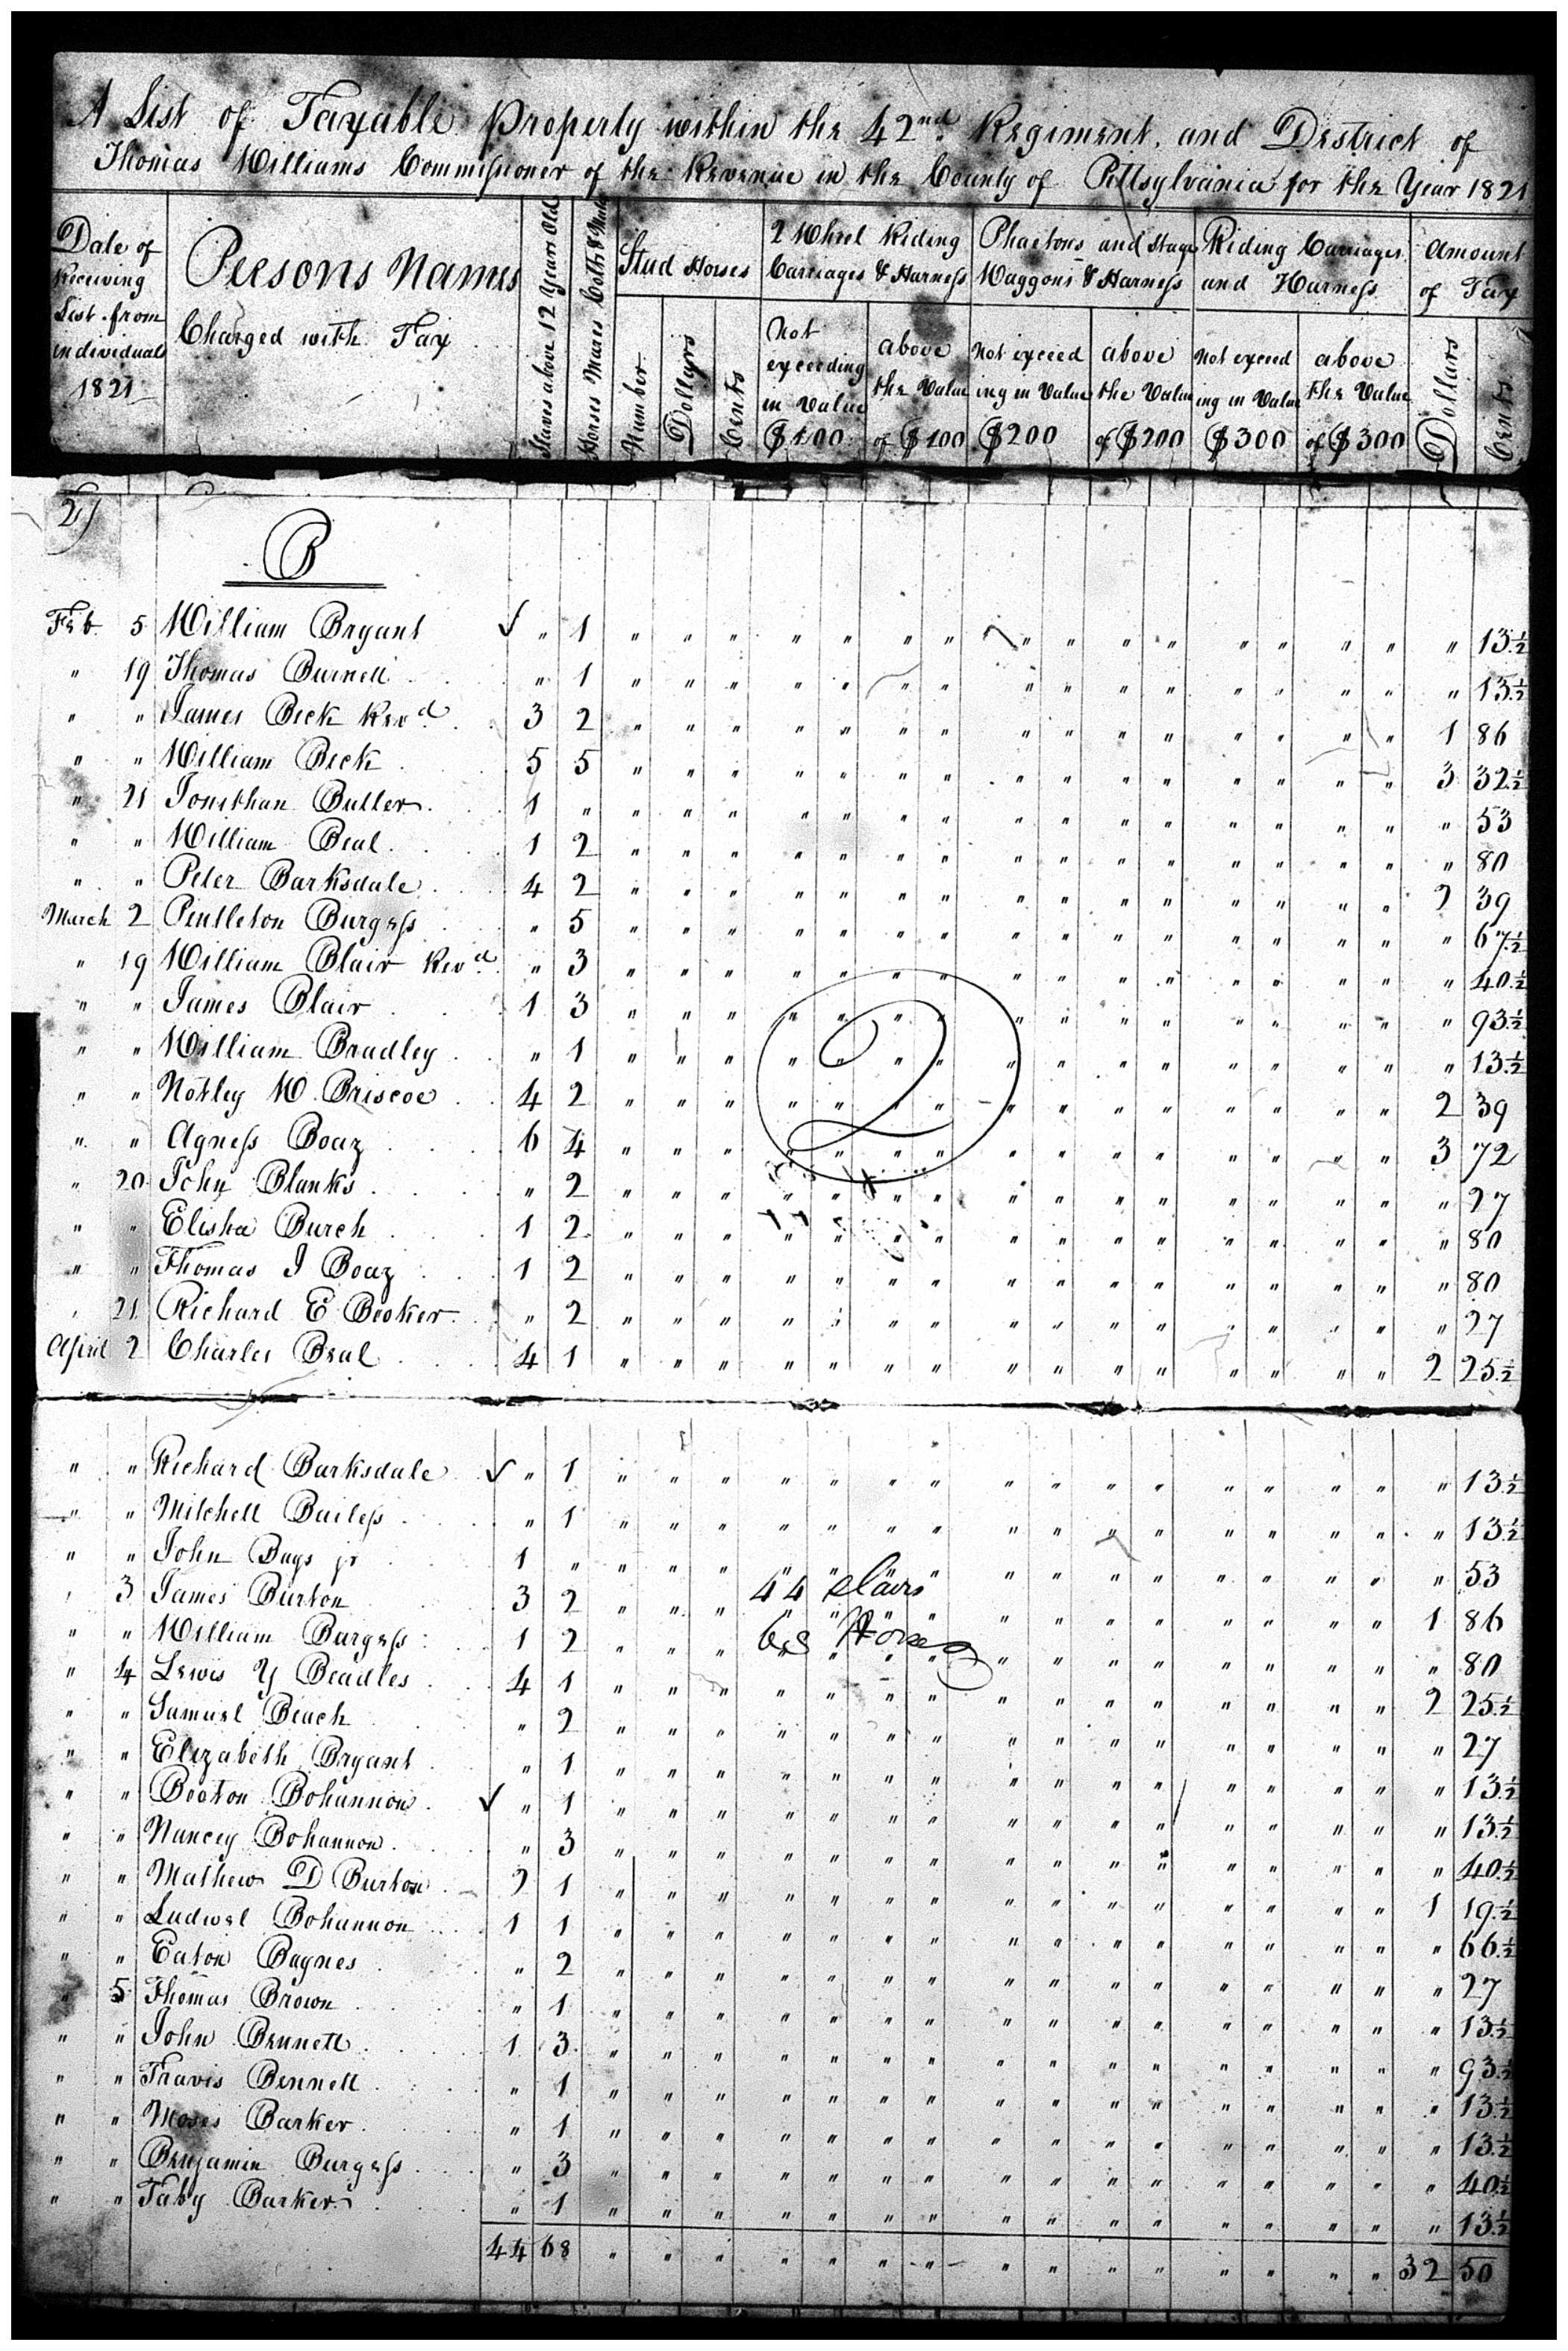 A List of Taxable Property within the 42nd Regiment, and District of
Thomas Williams Commissioner of the Revenue in the County of Pittsylvania for the Year 1821
Date of Receiving List from individuals 1821
Persons Names Charged with Tax
Slaves above 12 Years Old
Horses Mares Colts & Mules
Stud Horses
Number Dollars Cents
2 Wheel Riding Carriages & Harness
Not exceeding in Value $100
above the Value of $100
Phaetons and Stage Waggons & Harness
Not exceeding in Value $200
above the Value of $200
Riding Carriages and Harness
Not exceeding in Value $300
above the Value of $300
Amount of Tax
Dollars Cents
2)
B
Feb 5 William Bryant ✓ " 1 " " " " " " " " " " " " " " " " 13½
" 19 Thomas Burnett " 1 " " " " " " " " " " " " " " " " 13½
" " James Beck Revd 3 2 " " " " " " " " " " " " " " " 1 86
" " William Beck 5 5 " " " " " " " " " " " " " " " 3 32½
" 21 Jonithan Butler 1 " " " " " " " " " " " " " " " " " 53
" " William Beal 1 2 " " " " " " " " " " " " " " " " 80
" " Peter Barksdale 4 2 " " " " " " " " " " " " " " " 2 39
March 2 Pentleton Burgess " 5 " " " " " " " " " " " " " " " " 67½
" 19 William Blair Revd " 3 " " " " " " " " " " " " " " " " 40½
" " James Blair 1 3 " " " " " " " " " " " " " " " " 93½
" " William Bradley " 1 " " " " " " " " " " " " " " " " 13½
" " Notley W. Briscoe 4 2 " " " " " " " " " " " " " " " 2 39
" " Agness Boaz 6 4 " " " " " " " " " " " " " " " 3 72
" 20 John Blanks " 2 " " " " " " " " " " " " " " " " 27
" " Elisha Burch 1 2 " " " " " " " " " " " " " " " " 80
" " Thomas J Boaz 1 2 " " " " " " " " " " " " " " " " 80
" 21 Richard E Booker " 2 " " " " " " " " " " " " " " " " 27
April 2 Charles Beal 4 1 " " " " " " " " " " " " " " " 2 25½
2
" " Richard Barksdale ✓ " 1 " " " " " " " " " " " " " " " " 13½
" " Mitchell Bailess " 1 " " " " " " " " " " " " " " " " 13½
" " John Bays jr 1 " " " " " " " " " " " " " " " " " 53
" 3 James Burton 3 2 " " " " " " " " " " " " " " " 1 86
44 Slaves
" " William Burgess 1 2 " " " " " " " " " " " " " " " " 80
68 Horses
" 4 Lewis Y Beadles 4 1 " " " " " " " " " " " " " " " 2 25½
" " Samuel Beach " 2 " " " " " " " " " " " " " " " " 27
" " Elizabeth Bryant " 1 " " " " " " " " " " " " " " " " 13½
" " Booton Bohannon ✓ " 1 " " " " " " " " " " " " " " " " 13½
" " Nancey Bohannon " 3 " " " " " " " " " " " " " " " " 40½
" " Mathew D Burton 2 1 " " " " " " " " " " " " " " " 1 19½
" " Ludwel Bohannon 1 1 " " " " " " " " " " " " " " " " 66½
" " Eaton Baynes " 2 " " " " " " " " " " " " " " " " 27
" 5 Thomas Brown " 1 " " " " " " " " " " " " " " " " 13½
" " John Bennett 1 3 " " " " " " " " " " " " " " " " 93½
" " Travis Bennett " 1 " " " " " " " " " " " " " " " " 13½
" " Moses Barker " 1 " " " " " " " " " " " " " " " " 13½
" " Benjamin Burgess " 3 " " " " " " " " " " " " " " " " 40½
" " Taby Barker " 1 " " " " " " " " " " " " " " " " 13½
44 68 " " " " " " " " " " " " " " " 32 50